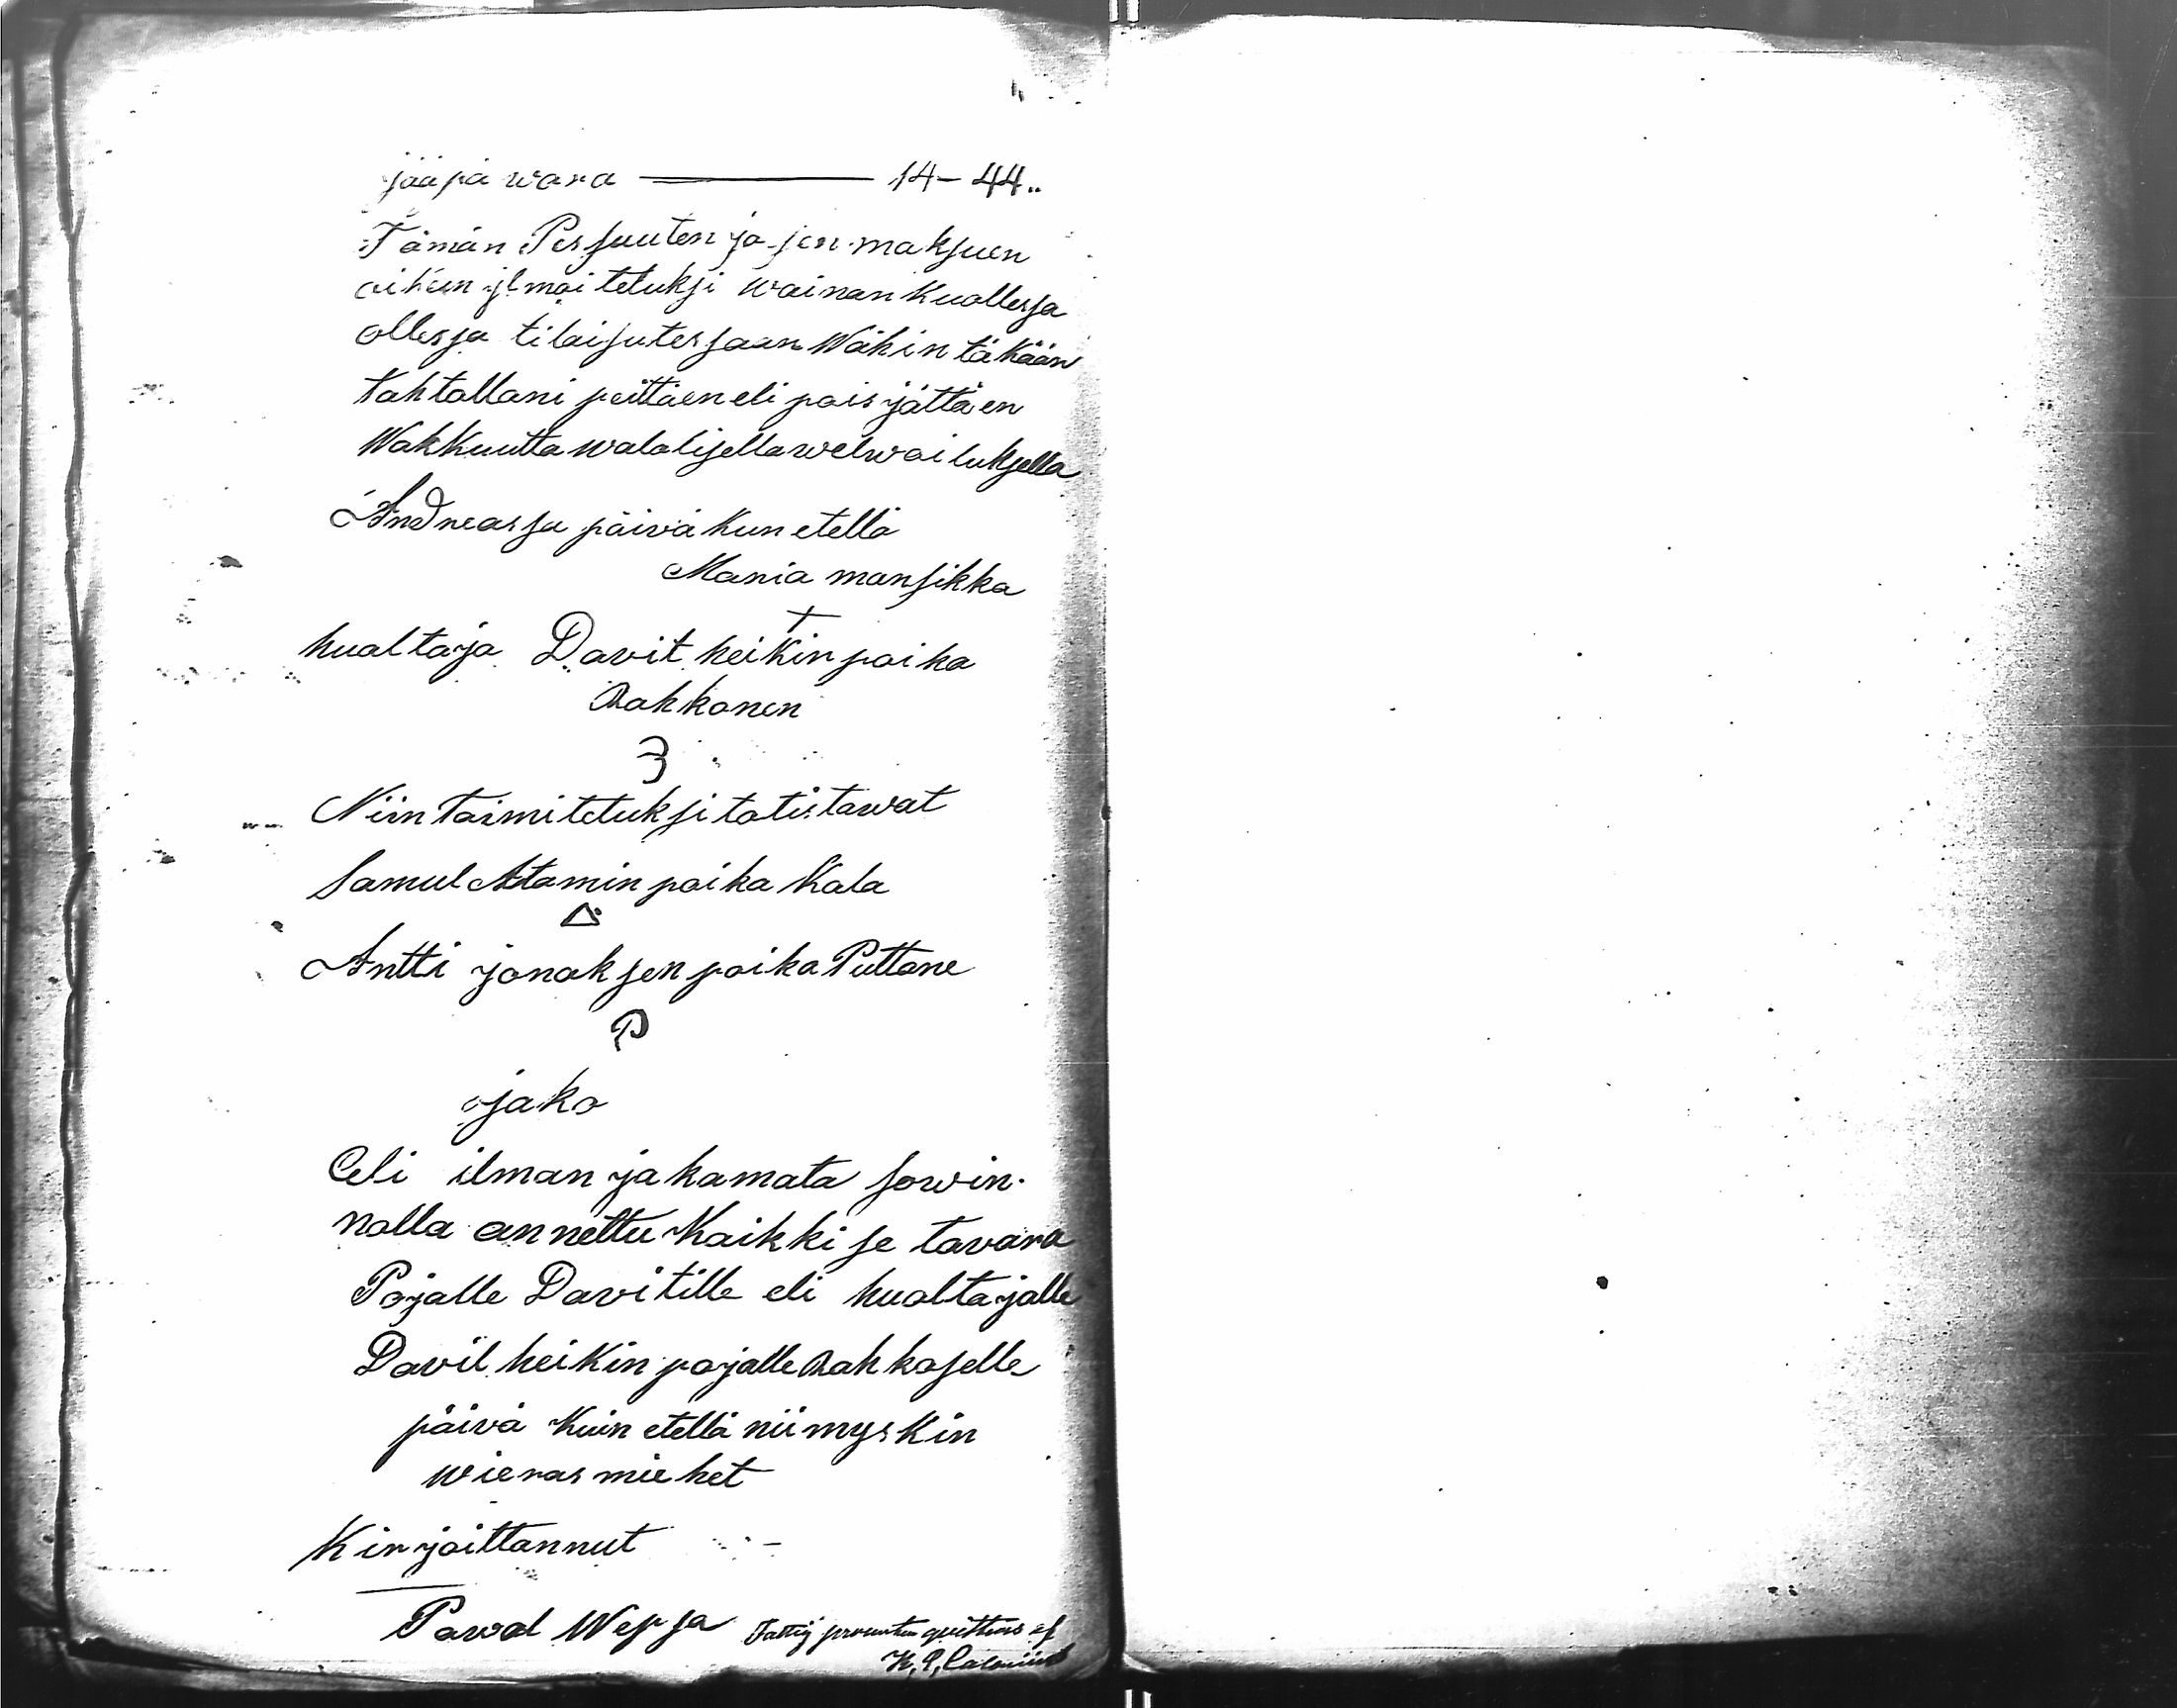 jääpä wara 14-44..
Tämän Pesjuuten ja sen maksuen
oikein ylmoi tetuksi wainan Kuollessa
ollessa tilaisutessaan Wähin täkään
tahtollani peittäen eli pois jättäen
Wakkuutta walalisella welwoi luksella
Andreassa päivä kun etellä
Maria mansikka
+
hualtaja Davit heikin poika
Rahkonen
3
Niin Toimitetuksi totistawat
Samul Atamin poika Kala
Antti jonaksen poika Puttone
P
jako
Eli ilman jakamata sowin-
nolla annettu Kaikki se tavara
Pojalle Davitille eli hualtajalle
Davit heikin pojalle Rahkoselle
päivä Kuin etellä nii myskin
wieras miehet
Kirjoittannut
Pawal Wepsa Fattig procenten qvitteras af
K. P. Calonius